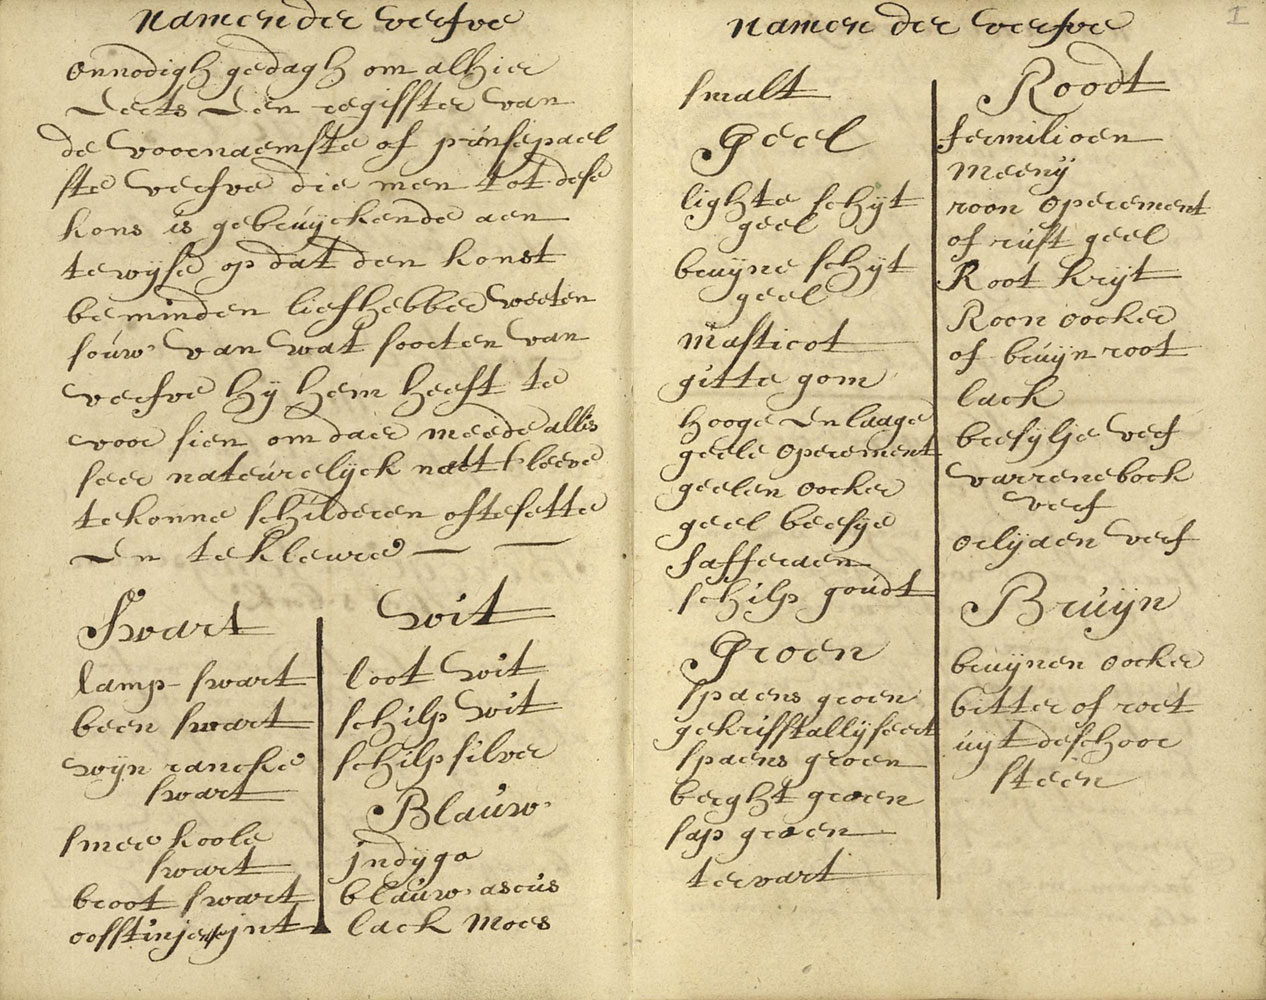 namen der verfve
onnodigh gedagh om alhier
eerts een regisster van
de voornaemste of prinsepael
ste verfve die men tot dese
kons is gebruijckende aen
te wijse op dat den konst
beminden liefhebber weeten
souw van wat soorten van
verfve hij hem heeft te
voor sien om daer meede alles
seer nateurelijck nae t leeve
te konne schilderen ofte sette
en te kleure —
Swart
lamp swart
been swart
wijn rancke
swart
smee koole
swart
broot swart
oosstinje
jnt
wit
loot wit
schilp wit
schilp silver
Blauw
jndijgo
blauw ascus
lack Moes
namen der verfve
1
smalt
Geel
lighte schijt
geel
bruijne schijt
geel
masticot
gitte gom
hooge en laage
geele operement
geelen oocker
geel beesije
safferaen
schilp goudt
Groen
spaens groen
gekrisstallijseert
spaens groen
berght groen
sap groen
tervart
Roodt
fermilioen
meenij
roon operement
of rust geel
Root krijt
Roon oocker
of bruijn root
lack
breesylje verf
varrenebock
verf
orlijaen verf
Bruijn
bruijnen oocker
bitter of roet
uijt de schoor
steen